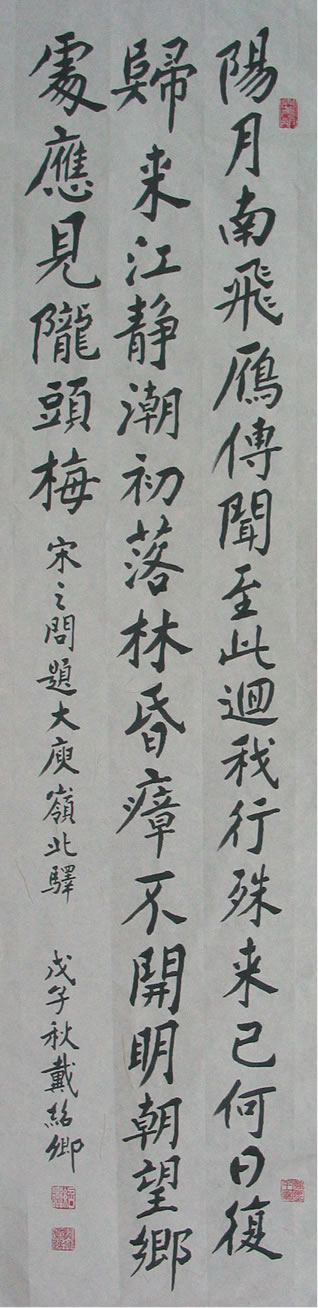 陽月南飛鴈傳聞至此迴我行殊来已何日復
歸来江静潮初落林昏瘴不開明朝望鄉
處應見隴頭梅
宋之問題大庾嶺北驛
戊子秋戴紹卿